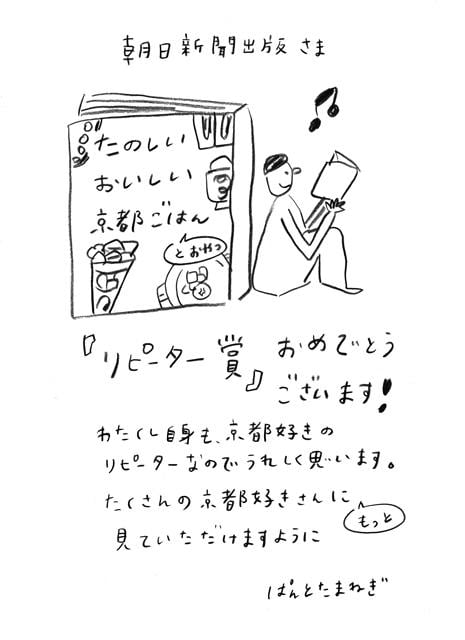 朝日新聞出版さま
たのしい
おいしい
京都ごはん
とおやつ
『リピーター賞』
おめでとう
ございます!
わたくし自身も、京都好きの
リピーターなのでうれしく思います。
たくさんの京都好きさんに
もっと
見ていただけますように
ぱんとたまねぎ